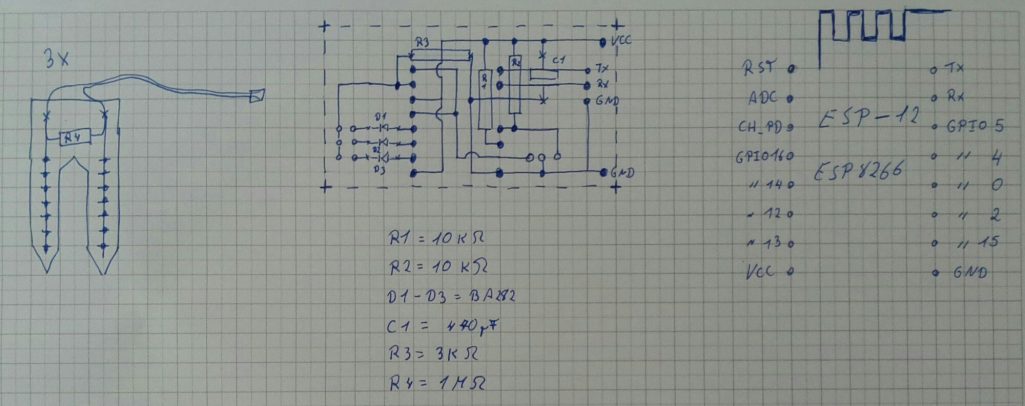 3x
R4
R3
D1
R2
D3
R1
R2
C1
VCC
Tx
Rx
GND
GND
R1 = 10 KΩ
R2 = 10 KΩ
D1-D3 = BA282
C1 = 470µF
R3 = 3KΩ
R4 = 1MΩ
RST
ADC
CH_PD
GPIO16
" 14
" 12
" 13
VCC
ESP-12
ESP8266
Tx
Rx
GPIO 5
" 4
" 0
" 2
" 15
GND